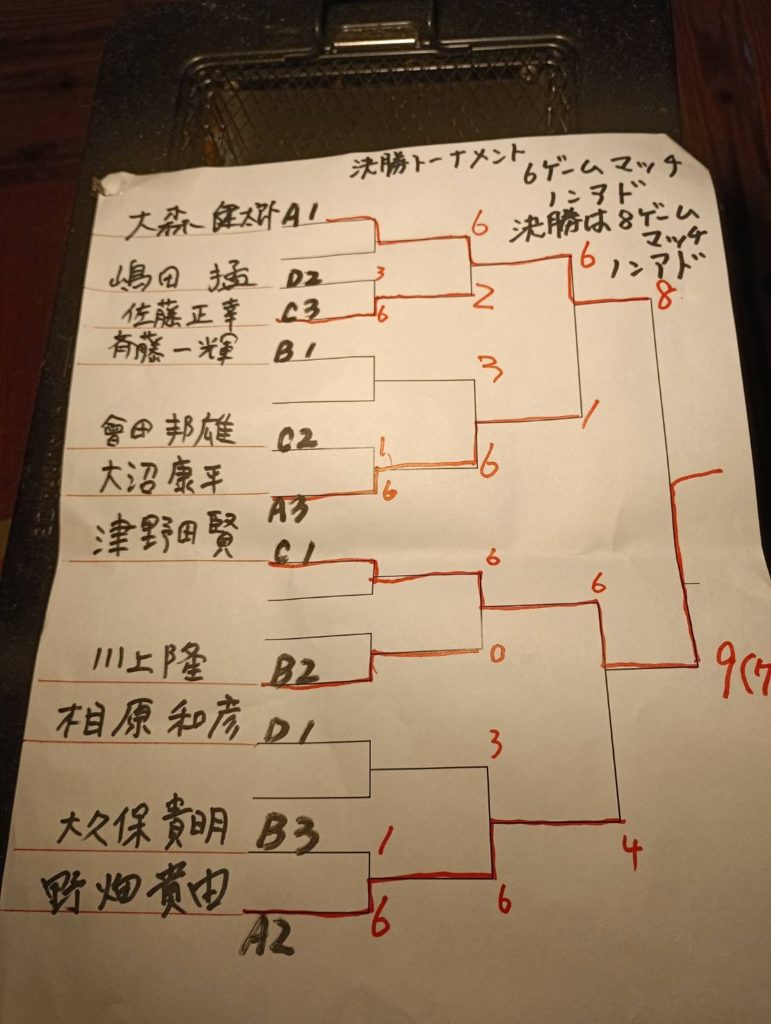 決勝トーナメント
6ゲームマッチ
ノンアド
決勝は8ゲーム
マッチ
ノンアド
大森 健太郎 A1
6
6
8
嶋田 猛 D2
3
佐藤正幸 C3
6
2
斉藤一輝 B1
3
1
會田邦雄 C2
1
6
大沼康平
6
A3
津野田賢 C1
6
6
川上隆 B2
0
9(7
相原和彦 D1
3
大久保貴明 B3
1
4
野畑貴由
6
6
A2